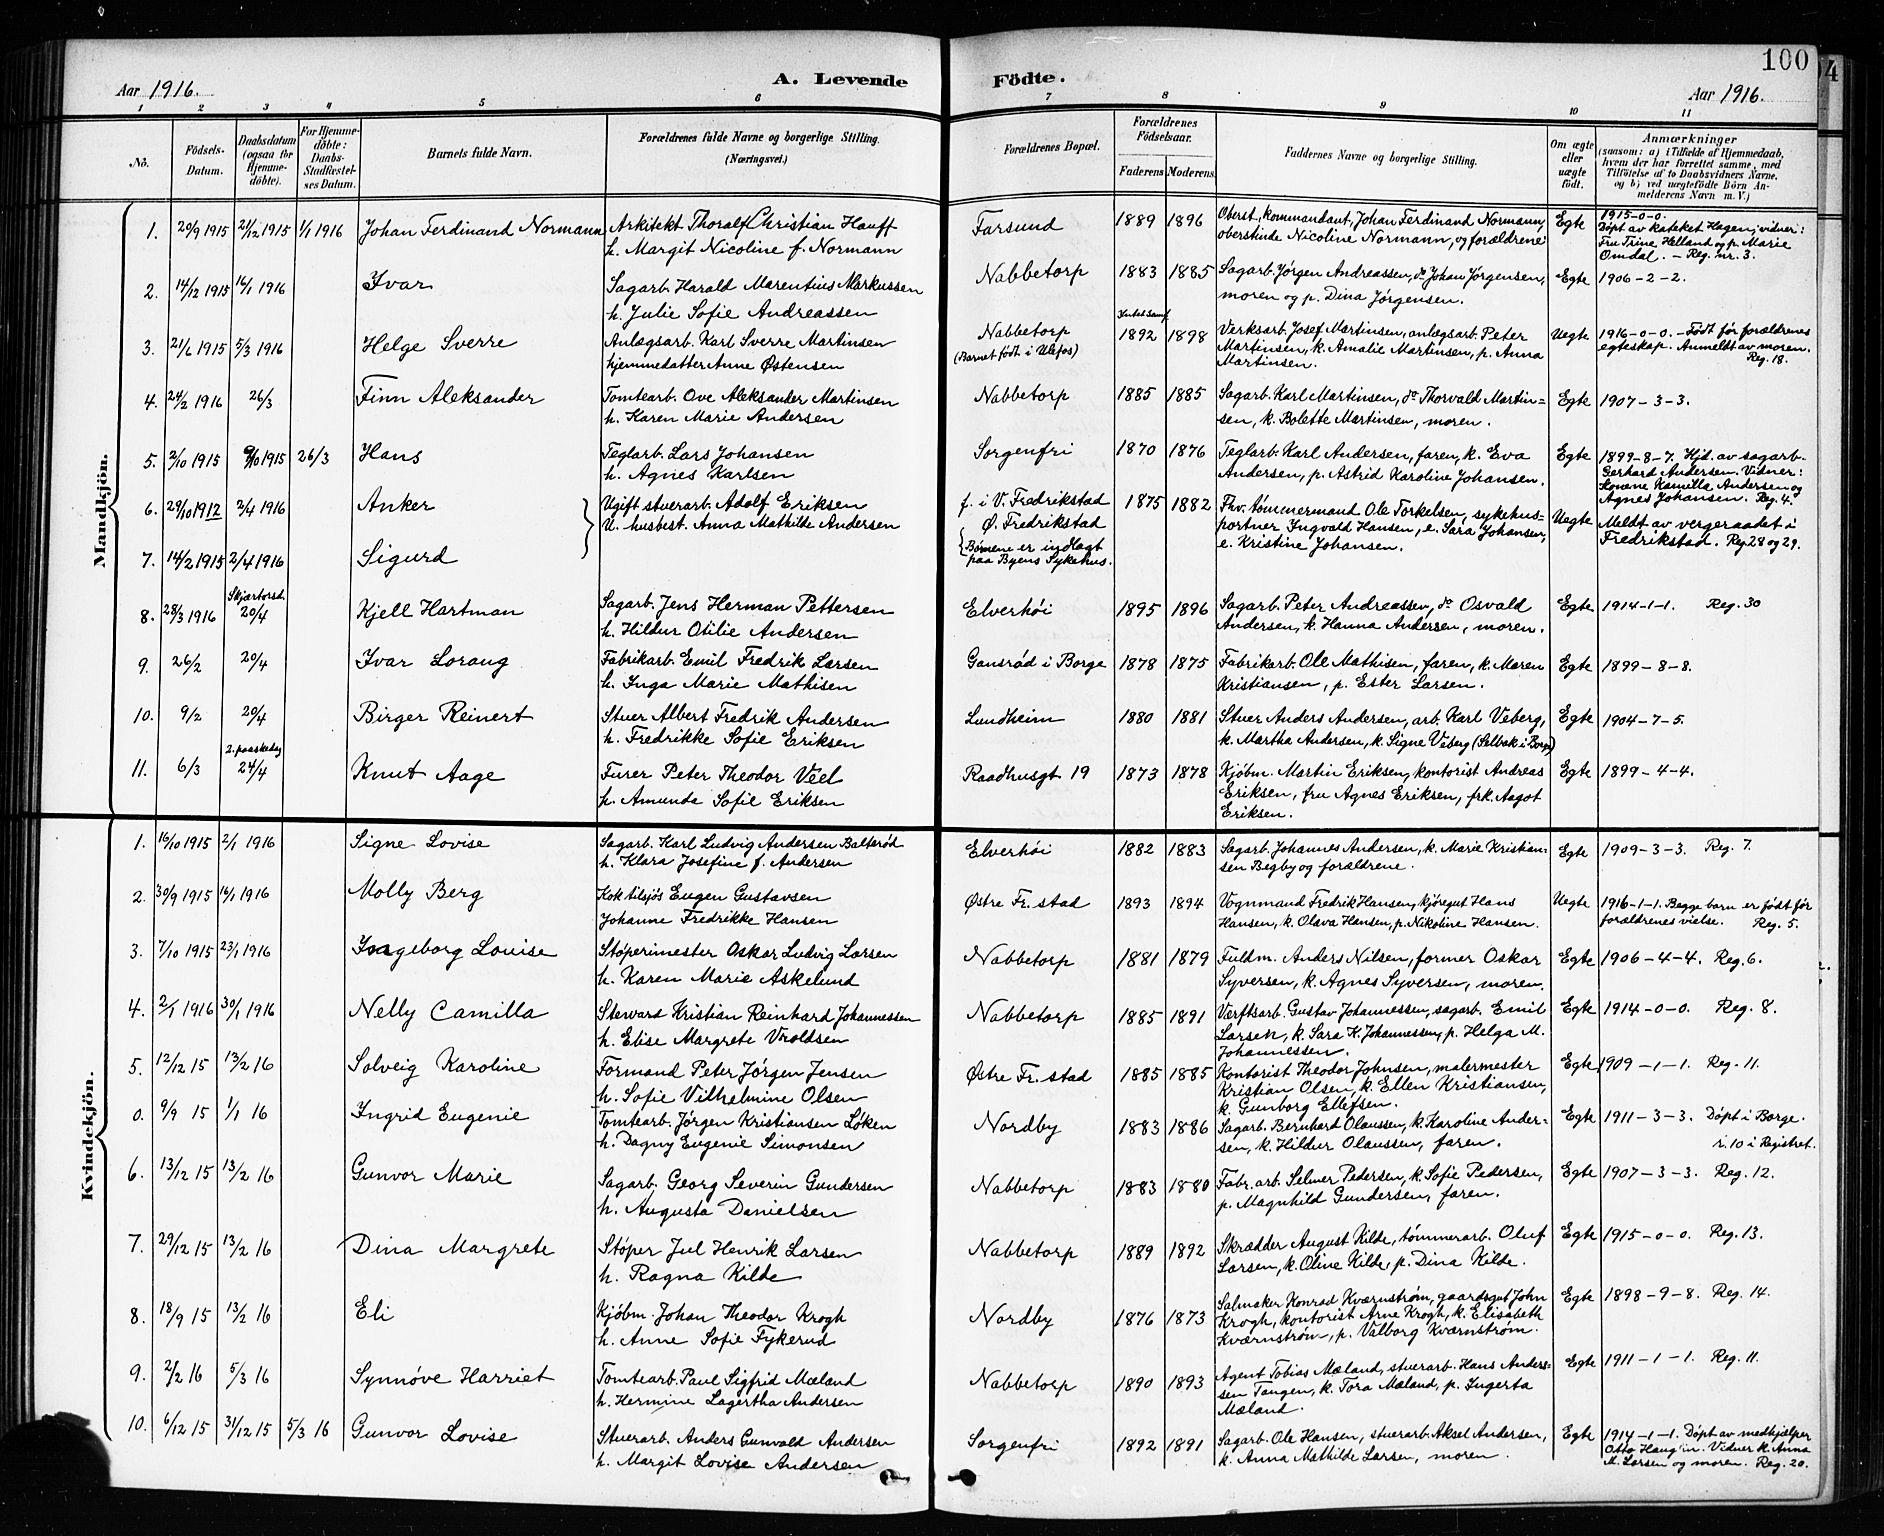 100
Aar 1916.
A. Levende Födte.
Aar 1916.
1 2 3 4 5 6 7 8 9 10 11
No.
Födsels-Datum.
Daabsdatum (ogsaa for Hjemme-döbte).
For Hjemme-döbte: Daabs-Stadfæstel-ses Datum.
Barnets fulde Navn.
Forældrenes fulde Navne og borgerlige Stilling. (Næringsvei.)
Forældrenes Bopæl.
Forældrenes Födselsaar.
Faderens Moderens
Faddernes Navne og borgerlige Stilling.
Om ægte eller uægte födt.
Anmærkninger (saasom: a) i Tilfælde af Hjemmedaab, hvem der har forrettet samme, med Tilföielse af to Daabsvidners Navne, og b) ved uægtefödte Börn Anmelderens Navn m. V.)
Mandkjön.
1. 29/9 1915 21/12 1915 1/1 1916 Johan Ferdinand Normann Arkitekt Thoralf Christian Hauff
h. Margit Nicoline f. Normann
Farsund 1889 1896 Oberst, kommandant, Johan Ferdinand Normann,
oberstinde Nicoline Normann, og forældrene
Egte 1915-0-0.
Døpt av kateket Hagen; vidner:
Fru Trine Helland og p. Marie
Omdal. – Reg. nr. 3.
2. 14/12 1915 16/1 1916 Ivar Sagarb. Harald Marentius Markussen
h. Julie Sofie Andreassen
Nabbetorp 1883 1885 Sagarb. Jørgen Andreassen, do Johan Jørgensen,
moren og p. Dina Jørgensen.
Egte 1906-2-2.
3. 21/6 1915 5/3 1916 Helge Sverre Anlægsarb. Karl Sverre Martinsen
hjemmedatter Anne Østensen
Nabbetorp
(Barnet født i Ulefos)
1892 1898 Verksarb. Josef Martinsen, anlægsarb. Peter
Martinsen, k. Amalie Martinsen, p. Anna
Martinsen.
Uegte 1916-0-0. – Født før forældrenes
egteskap. Anmeldt av moren.
Reg. 18.
4. 24/2 1916 26/3 Finn Aleksander Tomtearb. Ove Aleksander Martinsen
h. Karen Marie Andersen
Nabbetorp 1885 1885 Sagarb. Karl Martinsen, do Thorvald Martin=
sen, k. Bolette Martinsen, moren.
Egte 1907-3-3.
5. 2/10 1915 9/10 1915 26/3 Hans Teglarb. Lars Johansen
h. Agnes Karlsen
Sorgenfri 1870 1876 Teglarb. Karl Andersen, faren, k. Eva
Andersen, p. Astrid Karoline Johansen.
Egte 1899-8-7. Hjd. av sagarb.
Gerhard Andersen. Vidner:
Konene Kamilla Andersen og
Agnes Johansen. Reg. 4.
6. 29/10 1912 2/4 1916 Anker Ugift stuerarb. Adolf Eriksen
U. husbest. Anna Mathilde Andersen
f. i V. Fredrikstad
Ø. Fredrikstad
{Børnene er indlagt
paa Byens Sykehus.
1875 1882 Fhv. tømmermand Ole Torkelsen, sykehus-
portner Ingvald Hansen, e. Sara Johansen,
e. Kristine Johansen.
Uegte Meldt av vergeraadet i
Fredrikstad. Reg 28 og 29.
7. 14/2 1915 2/4 1916 Sigurd
8. 28/3 1916 Skjærtorsd. 20/4 Kjell Hartman Sagarb. Jens Herman Pettersen
h. Hildur Otilie Andersen
Elverhöi 1895 1896 Sagarb. Peter Andreassen, do Osvald
Andersen, k. Hanna Andersen, moren.
Egte 1914-1-1. Reg. 30
9. 26/2 20/4 Ivar Lorang Fabrikarb. Emil Fredrik Larsen
h. Inga Marie Mathisen
Gansrød i Borge 1878 1875 Fabrikarb. Ole Mathisen, faren, k. Maren
Kristiansen, p. Ester Larsen.
Egte 1899-8-8.
10. 9/2 20/4 Birger Reinert Stuer Albert Fredrik Andersen
h. Fredrikke Sofie Eriksen
Lundheim 1880 1881 Stuer Anders Andersen, arb. Karl Veberg,
k. Martha Andersen, k. Signe Veberg (Selbak i Borge)
Egte 1904-7-5.
11. 6/3 2. paaskedag 24/4 Knut Aage Furer Peter Theodor Veel
h. Amunda Sofie Eriksen
Raadhusgt 19 1873 1878 Kjøbm. Martin Eriksen, kontorist Andreas
Eriksen, fru Agnes Eriksen, frk. Aagot
Eriksen.
Egte 1899-4-4.
Kvindekjön.
1. 16/10 1915 2/1 1916 Signe Lovise Sagarb. Karl Ludvig Andersen Balterød
h. Klara Josefine f. Andersen
Elverhöi 1882 1883 Sagarb. Johannes Andersen, k. Marie Kristian-
sen Begby og forældrene.
Egte 1909-3-3. Reg. 7.
2. 30/9 1915 16/1 1916 Molly Berg Kok tilsjøs Eugen Gustavsen
Johanne Fredrikke Hansen
Østre Fr.stad 1893 1894 Vognmand Fredrik Hansen, kjøregut Hans
Hansen, k. Olava Hansen, p. Nikoline Hansen.
Uegte 1916-1-1. Begge barn er født før
forældrenes vielse. Reg. 5.
3. 7/10 1915 23/1 1916 Ingeborg Louise Støperimester Oskar Ludvig Larsen
h. Karen Marie Askelund
Nabbetorp 1881 1879 Fuldm. Anders Nilsen, former Oskar
Syversen, k. Agnes Syversen, moren.
Egte 1906-4-4. Reg. 6.
4. 2/1 1916 30/1 1916 Nelly Camilla Steward Kristian Reinhard Johannessen
h. Elise Margrete Vroldsen
Nabbetorp 1885 1891 Verftsarb. Gustav Johannessen, sagarb. Emil
Larsen, k. Sara K. Johannessen, p. Helga M.
Johannessen.
Egte 1914-0-0. Reg. 8.
5. 12/12 15 13/2 16 Solveig Karoline Formand Peter Jørgen Jensen
h. Sofie Vilhelmine Olsen
Østre Fr. stad 1885 1885 Kontorist Theodor Johnsen, malermester
Kristian Olsen, k. Ellen Kristiansen,
k. Gunborg Ellefsen.
Egte 1909-1-1. Reg. 11.
0. 9/9 15 1/1 16 Ingrid Eugenie Tomtearb. Jørgen Kristiansen Løken
h. Dagny Eugenie Simonsen
Nordby 1883 1886 Sagarb. Bernhard Olaussen, k. Karoline Ander-
sen, k. Hildur Olaussen, faren.
Egte 1911-3-3. Døpt i Borge.
i. 10 i Registret.
6. 13/12 15 13/2 16 Gunvor Marie Sagarb. Georg Severin Gundersen
h. Augusta Danielsen
Nabbetorp 1883 1880 Fabr. arb. Selmer Pedersen, k. Sofie Pedersen,
p. Magnhild Gundersen, faren.
Egte 1907-3-3. Reg. 12.
7. 29/12 15 13/2 16 Dina Margrete Støper Jul Henrik Larsen
h. Ragna Kilde
Nabbetorp 1889 1892 Skrædder August Kilde, tømmerarb. Oluf
Larsen, k. Oline Kilde, p. Dina Kilde.
Egte 1915-0-0. Reg. 13.
8. 18/9 15 13/2 16 Eli Kjöbm. Johan Theodor Krogh
h. Anne Sofie Fykerud
Nordby 1876 1873 Salmaker Konrad Kværnstrøm, gaardsgut John
Krogh, kontorist Arne Krogh, k. Elisabeth
Kværnstrøm, p. Valborg Kværnstrøm.
Egte 1898-9-8. Reg. 14.
9. 2/2 16 5/3 16 Synnøve Harriet Tomtearb. Paul Sigfrid Mæland
h. Hermine Lagertha Andersen
Nabbetorp 1890 1893 Agent Tobias Mæland, stuerarb. Hans Anders-
sen Tangen, k. Tora Mæland, p. Ingerta
Mæland.
Egte 1911-1-1. Reg. 11.
10. 6/12 15 31/12 15 5/3 16 Gunvor Lovise Stuerarb. Anders Gunvald Andersen
h. Margit Lovise Andersen
Sorgenfri 1892 1891 Sagarb. Ole Hansen, stuerarb. Aksel Andersen,
k. Anna Mathilde Larsen, moren.
Egte 1914-1-1. Døpt av medhjælper
Otto Haugen. Vidner k. Anna
M. Larsen og moren. Reg. 20.